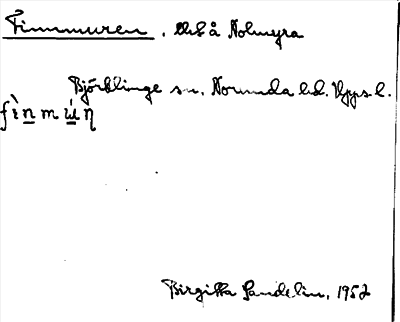 Finnmuren, utb å Nolmyra
Björklinge sn. Norunda hd. Upps. l.
fìn̲mu̲̍ṇ
Birgitta Sandelin, 1952